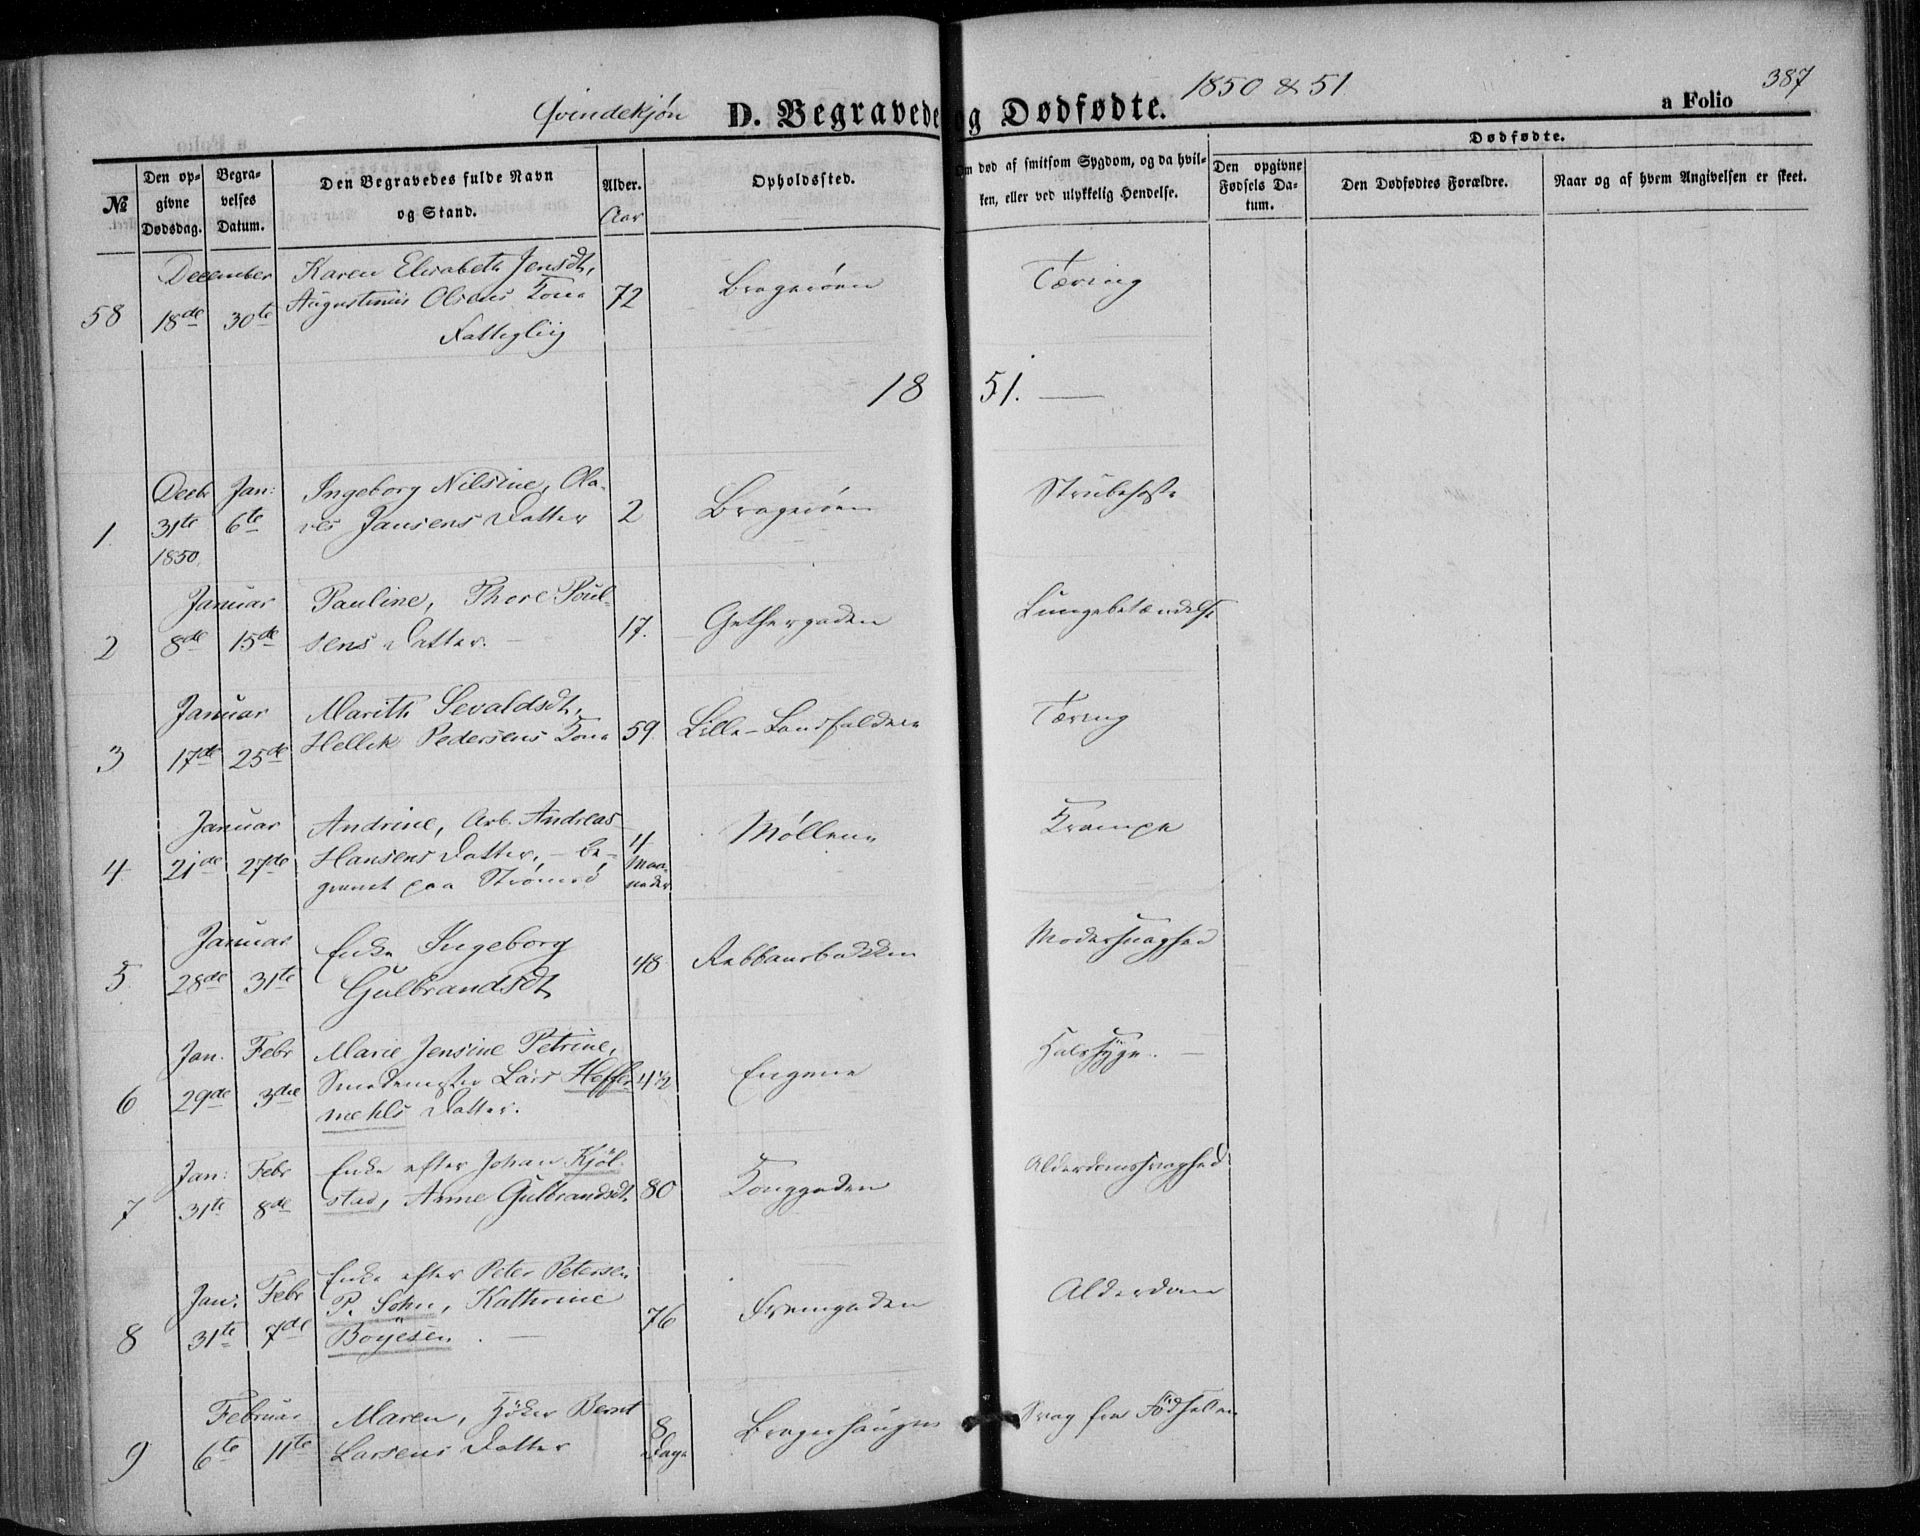 Qvindekjøn D. Begravede og Dødfødte. 1850 & 51 a Folio 387
№
Den opgivne Dødsdag.
Begravelses Datum.
Den Begravedes fulde Navn og Stand.
Alder. Aar
Opholdssted.
Om død af smitsom Sygdom, og da hvilken, eller ved ulykkelig Hendelse.
Dødfødte.
Den opgivne Fødsels Datum.
Den Dødfødtes Forældre.
Naar og af hvem Angivelsen er skeet.
December Karen Elisabeth Jensdt,
58 18de 30te Augustinus Olsens Kone 72 Bragerøen Tæring
Fattiglig
1851.
Decbr Jan: Ingeborg Nilsine, Ola-
1. 31te 6te ves Jansens Datter 2 Bragerøen Strubehoste
1850.
Januar Pauline, Thore Poul-
2 8de 15de sens Datter. 17. Gethergaden Lungebetændelse
Januar Marith Sevaldsdt,
3 17de 25de Hellek Pedersens Kone 59 Lille-Landfaldene Tæring
Januar Andrine, Arb. Andreas
4 21de 27de Hansens Datter, - be- 4 Maaneder Møllene Krampe
gravet paa Strømsø
Januar Enke Ingeborg
5 28de 31te Gulbrandsdt, 48 Rebbansbakken Moderkrogshed
Jan. Febr Marie Jensine Petrine,
6 29de 3die Smedemester Lars Heffer- 4½ Engene Halssyge.
mehls Datter.
Jan: Febr Enke efter Johan Kjöl-
7 31te 8de stad, Anne Gulbrandsdt, 80 Konggaden Alderdomssvaghed
Jan: Febr Enke efter Peter Petersen
8 31te 7de P. Sohn, Kathrine 76 Fremgaden Alderdom
Boyesen.
Februar Maren, Höker Bernt
9 6te 11te Larsens Datter 8 Dage Bragerhaugen Svag fra Födselen